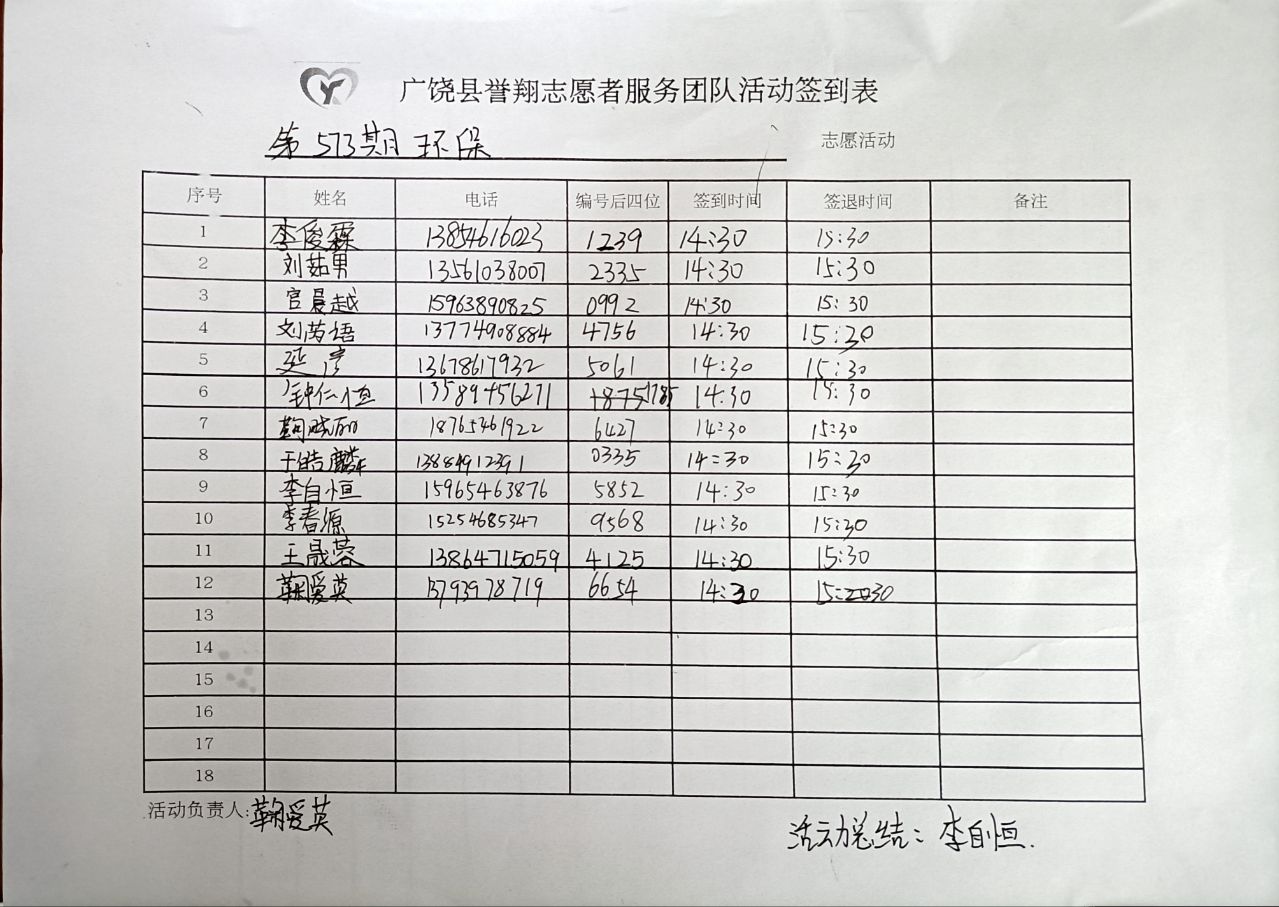 广饶县誉翔志愿者服务团队活动签到表
第573期环保 志愿活动
序号 姓名 电话 编号后四位 签到时间 签退时间 备注
1 李俊霖 13854616023 1239 14:30 15:30
2 刘茹男 13561038007 2335 14:30 15:30
3 官晨越 15963890825 0992 14:30 15:30
4 刘芮语 13774908884 4756 14:30 15:30
5 延彦 13678617932 5061 14:30 15:30
6 钟仁恒 13589456271 1785 14:30 15:30
7 鞠晓丽 18765461922 6427 14:30 15:30
8 于皓麟 13884912391 0335 14:30 15:30
9 李自恒 15965463876 5852 14:30 15:30
10 李春源 15254685347 9568 14:30 15:30
11 王晟蓉 13864715059 4125 14:30 15:30
12 鞠爱英 13793978719 6654 14:30 15:30
13
14
15
16
17
18
活动负责人:鞠爱英
活动总结:李自恒.